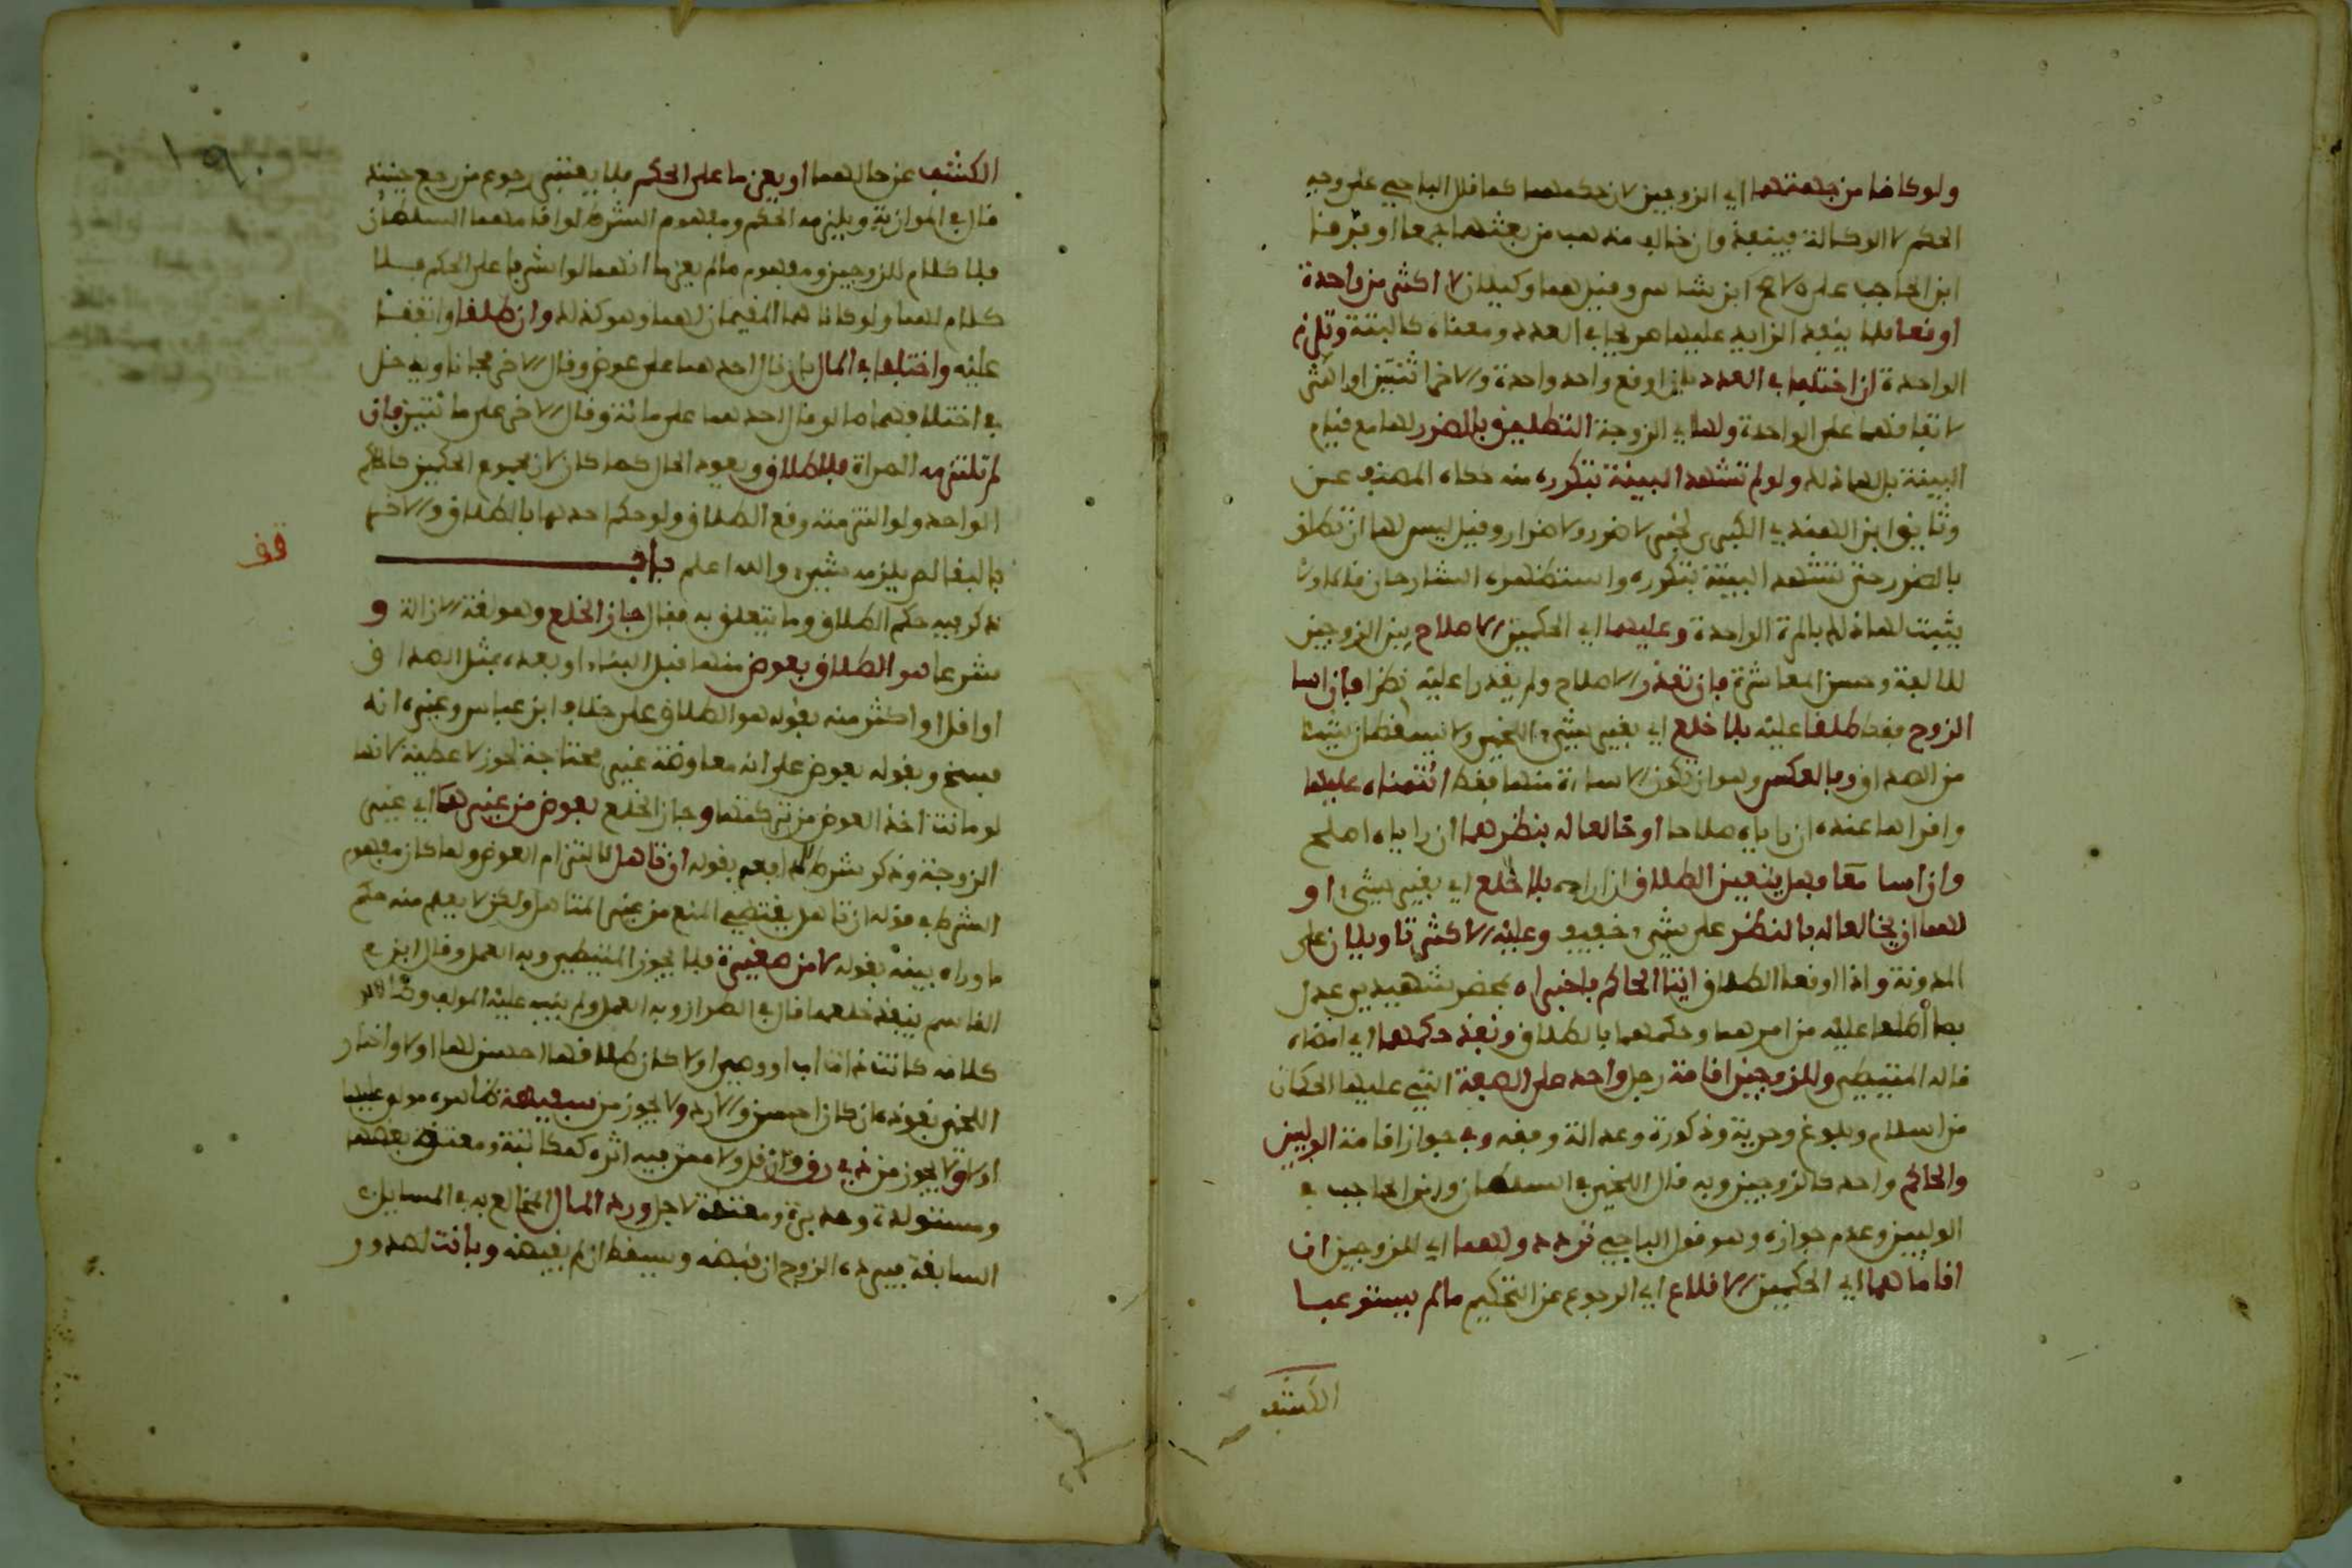 ولو كانا من جهتهما اي الزوجين لان حكمهما كما قال الباجي على وجه
الحكم لا الوكالة فينفذ وان خالف مذهب من بعثهما جمعا او فرقا
ابن الحاجب على الاصح ابن شاس وقيل هما وكيلان لا اكثر من واحدة
اوقعا فلا ينفذ الزايد عليها صريحا في العدد ومعناه كالبتة وتلزم
الواحدة ان اختلفا في العدد بان اوقع واحد واحدة والاخر اثنتين او اكثر
لاتفاقهما على الواحدة ولها اي الزوجة التطليق بالضرر لها مع قيام
البينة بل لها ذلك ولو لم تشهد البينة بتكرره منه حكاه المصنف عن
وثايق ابن الهندي الكبرى لخبر لا ضرر ولا ضرار وقيل ليس لها ان تطلق
بالضرر حتى تشهد البينة بتكرره واستظهره الشارحان قالا ولا
يثبت لها ذلك بالمرة الواحدة وعليهما اي الحكمين الاصلاح بين الزوجين
للالفة وحسن المعاشرة فان تعذر الاصلاح ولم يقدرا عليه نظرا فان اسا
الزوج فقط طلقا عليه بلا خلع اي بغير شيء اللخمي ولا يسقطان شيئا
من الصداق وبالعكس وهو ان تكون الاساءة منها فقط ائتمناه عليها
واقراها عنده ان راياه صلاحا او خالعا له بنظرهما ان راياه اصلح
وان اسا معا فهل يتعين الطلاق ان اراده بلا خلع اي بغير شيء او
لهما ان يخالعا له بالنظر على شيء خفيف وعليه الاكثر تاويلان على
المدونة واذا اوقعا الطلاق اتيا الحاكم فاخبراه بمحضر شهيدين عدل
بما اطلعا عليه من امرهما وحكمهما بالطلاق ونفذ حكمهما اي امضاه
قاله المتيطي وللزوجين اقامة رجل واحد على الصفة التي عليها الحكمان
من اسلام وبلوغ وحرية وذكورة وعدالة وفقه وفي جواز اقامة الوليين
والحاكم واحد كالزوجين وبه قال اللخمي في السلطان وابن الحاجب في
الوليين وعدم جوازه وهو قول الباجي تردد ولهما اي للزوجين ان
اقاماهما اي الحكمين الاقلاع اي الرجوع عن التحكيم ما لم يستوعبا
الكشف
الكشف عن حالهما او يعزما على الحكم فلا يعتبر رجوع من رجع حينئذ
قال في الموازية ويلزمه الحكم ومفهوم الشرط لو اقامهما السلطان
فلا كلام للزوجين ومفهوم ما لم يعزما انهما لو اشرفا على الحكم فلا
كلام لهما ولو كانا هما المقيمان لهما وهو كذلك وان طلقا واتفقا
عليه واختلفا في المال بان قال احدهما على عوض وقال الاخر مجانا ويدخل
في اختلافهما ما لو قال احدهما على مائة وقال الاخر على مائتين فان
لم تلتزمه المراة فلا طلاق ويعود الحال كما كان لان مجموع الحكمين كالحكم
الواحد ولو التزمته وقع الطلاق ولو حكم احدهما بالطلاق والاخر
بالبقا لم يلزمه شيء والله اعلم باب
قف
ذكر فيه حكم الطلاق وما يتعلق به فقال جاز الخلع وهو لغة الازالة و
شرعا هو الطلاق بعوض منها قبل البناء او بعده بمثل الصداق
او اقل او اكثر منه بقوله هو الطلاق على خلاف ابن عباس وغيره انه
فسخ وبقوله بعوض على انه معاوضة غير محتاجة لحوز لا عطية لانها
لو ماتت اخذ العوض من تركتها وجاز الخلع بعوض من غيرها اي غير
الزوجة وذكر شرط الدافع بقوله ان تاهل لالتزام العوض ولما كان مفهوم
الشرط في قوله ان تاهل يقتضي المنع من غير المتاهل ولكن لا يعلم منه حكم
ما وراه بينه بقوله لا من صغيرة فلا يجوز المتيطي وبه العمل وقال ابن
القاسم ينفذ خلعها قال في الطراز وبه العمل ولم ينبه عليه المولف وظاهر
كلامه كانت ذات اب او وصي او لا كان طلاقها احسن لها او لا واختار
اللخمي نفوذه ان كان احسن والا رد ولا يجوز من سفيهة ظاهره مولى عليها
او لا ولا يجوز من ذي رق وان قل ولا ممن فيه اثره كمكاتبة ومعتق بعضها
ومستولدة ومدبرة ومعتقة لاجل ورد المال المخالع به في المسايل
السابقة فيرده الزوج ان قبضه ويسقط ان لم يقبضه وبانت لصدور